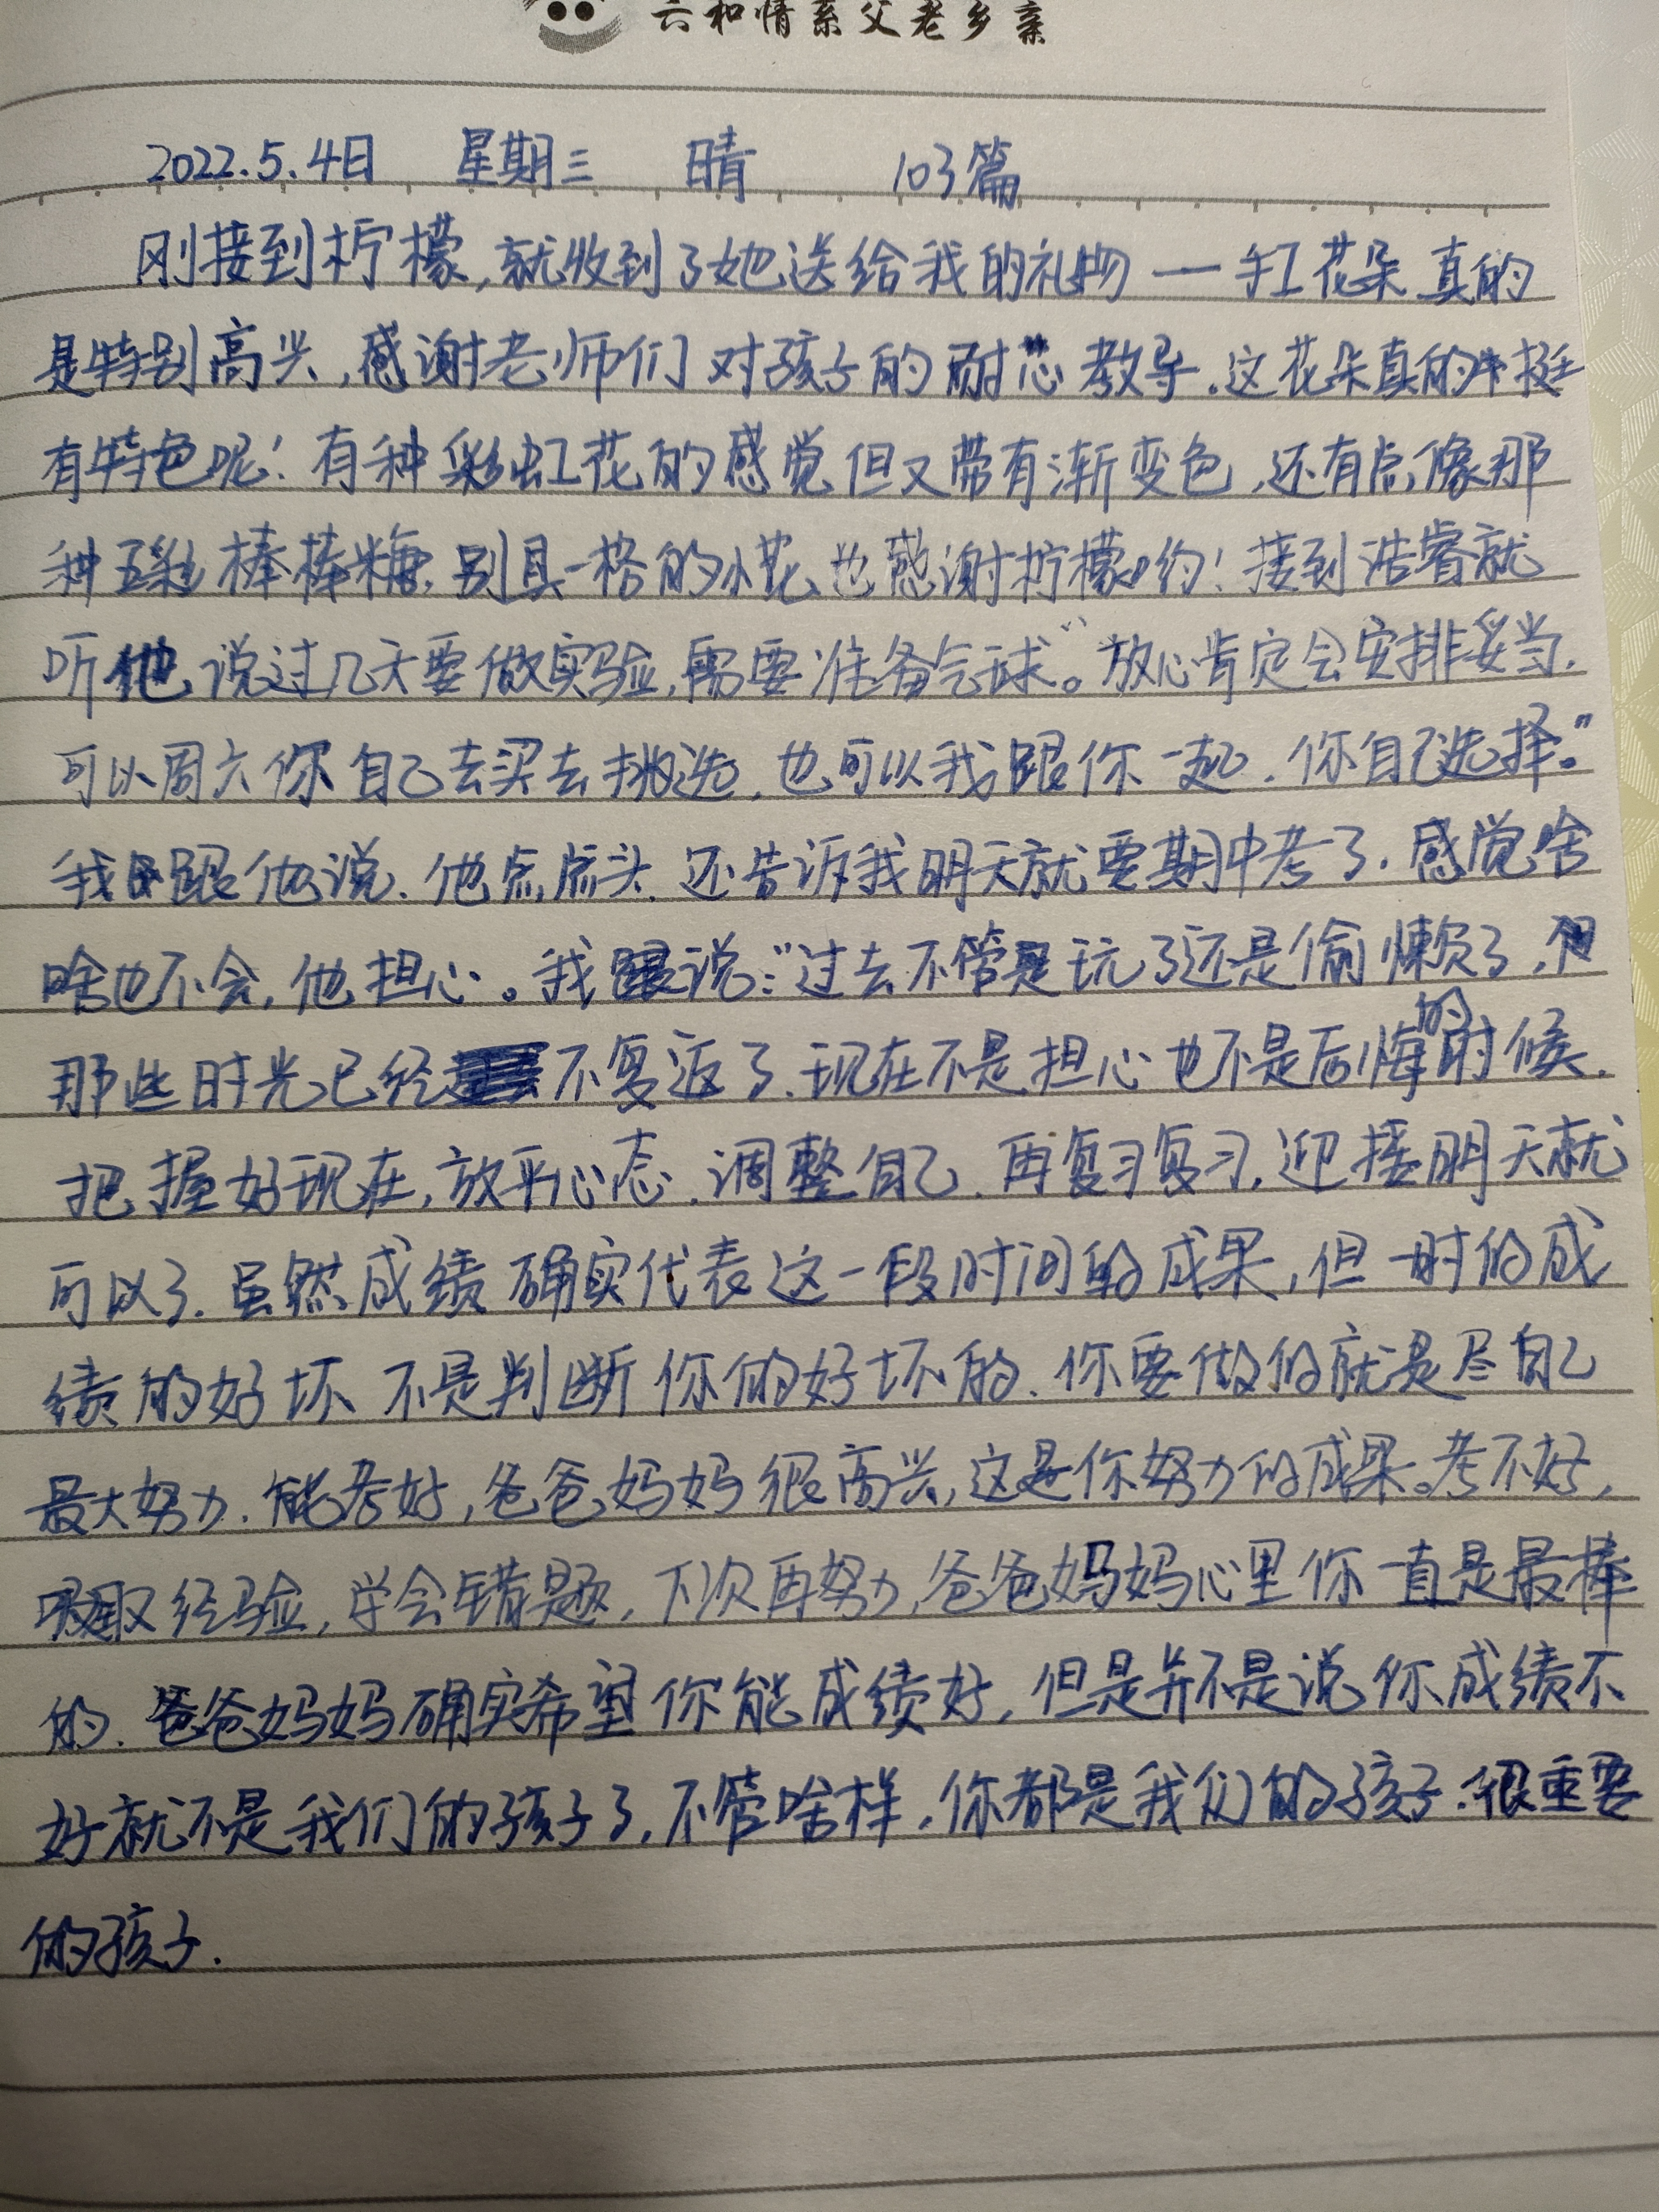 六和情系父老乡亲
2022.5.4日 星期三 晴 103篇
刚接到柠檬,就收到了她送给我的礼物一红花朵真的
是特别高兴,感谢老师们对孩子的耐心教导.这花朵真的挺
有特色呢!有种彩虹花的感觉但又带有渐变色,还有点像那
种五彩棒棒糖,别具一格的小花,也感谢柠檬哟!接到浩睿就
听他说过几天要做实验,需要准备气球。"放心肯定会安排妥当.
可以周六你自己去买去挑选,也可以我跟你一起.你自己选择。"
我跟他说.他点点头.还告诉我明天就要期中考了.感觉啥
啥也不会,他担心。我跟说:"过去不管是玩了还是偷懒了,但
那些时光已经不复返了.现在不是担心也不是后悔的时候.
把握好现在,放平心态.调整自己.再复习复习,迎接明天就
可以了.虽然成绩确实代表这一段时间的成果,但一时的成
绩的好坏不是判断你的好坏的.你要做的就是尽自己
最大努力.能考好,爸爸妈妈很高兴,这是你努力的成果。考不好,
吸取经验,学会错题,下次再努力,爸爸妈妈心里你一直是最棒
的.爸爸妈妈确实希望你能成绩好,但是并不是说你成绩不
好就不是我们的孩子了,不管啥样,你都是我们的孩子.很重要
的孩子.